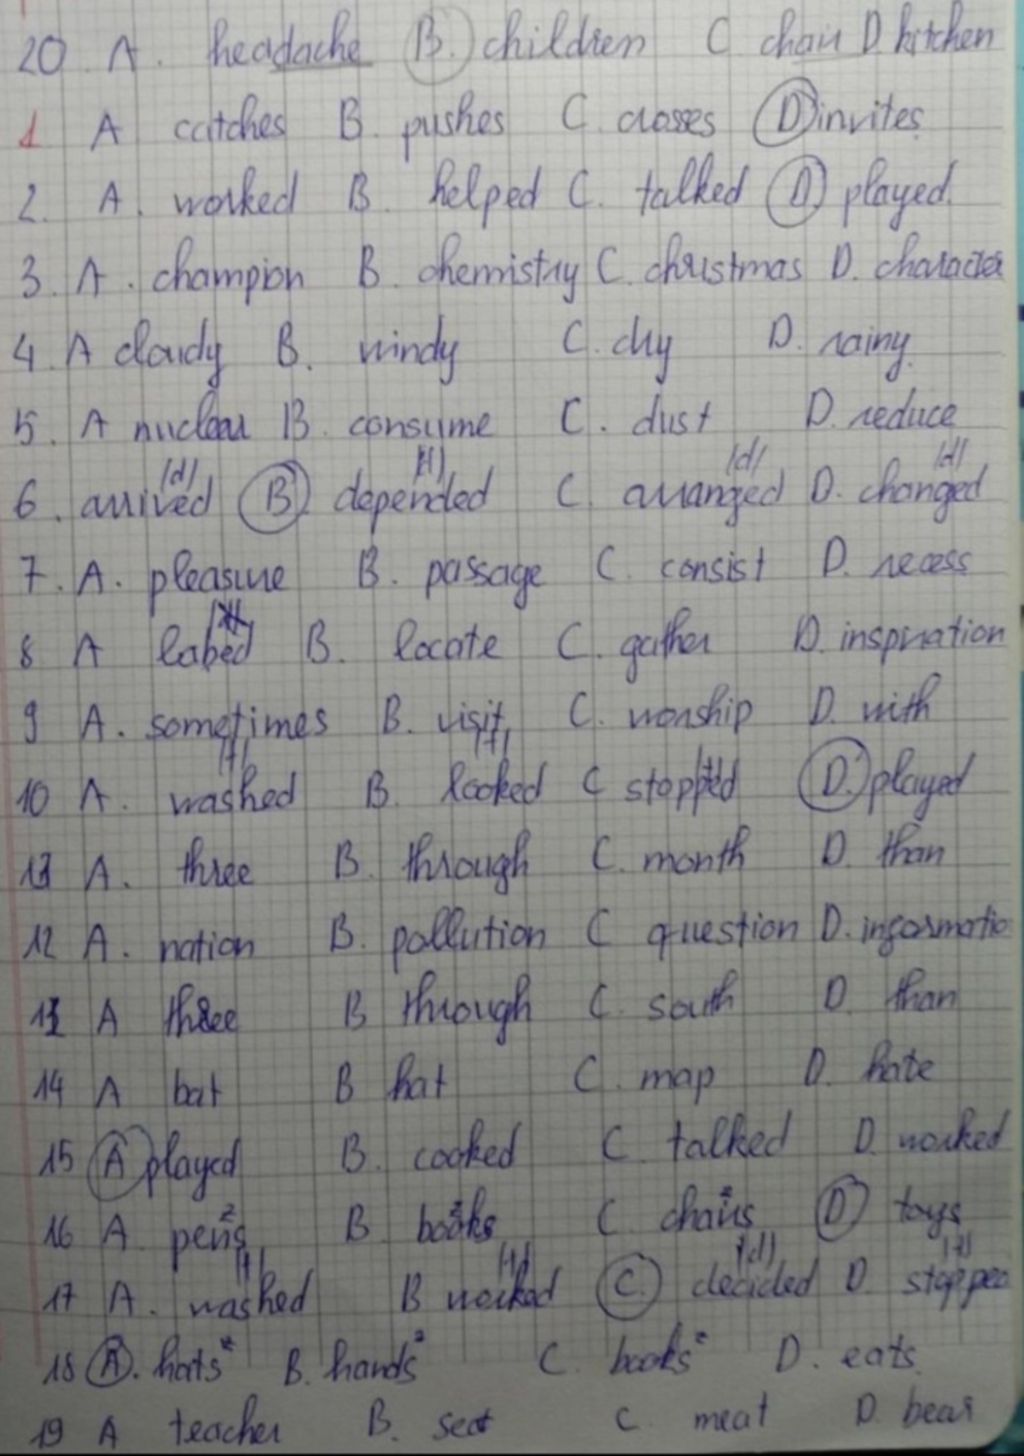 20. A. headache B. children C chair D kitchen
1 A catches B. pushes C. closses D invites
2. A. worked B. helped C. talked D played.
3. A. champion B. chemistry C. christmas D. character
4. A cloudy B. windy C. dry D. rainy.
5. A nuclear B. consume C. dust D. reduce
/d/ /d/ /d/
6. arrived B depended C. arranged D. changed
7. A. pleasure B. passage C. consist D. recess
8 A B. locate C. gather D. inspiration
9 A. sometimes B. visit C. worship D. with
/t/ /t/
10 A. washed B. looked C stopped D. played
A. three B. through C. month D. than
12 A. nation B. pollution C question D. informatio
A three B through C. south D. than
14 A bat B hat C. map D. hate
15 A played B. cooked C. talked D. worked
16 A. pens B books C. chairs D toys
/t/ /t/ /d/ /t/
17 A. washed B worked C. decided D. stopped
18 A. hats B. hands C. books D. eats.
19 A teacher B. seat C. meat D. bear